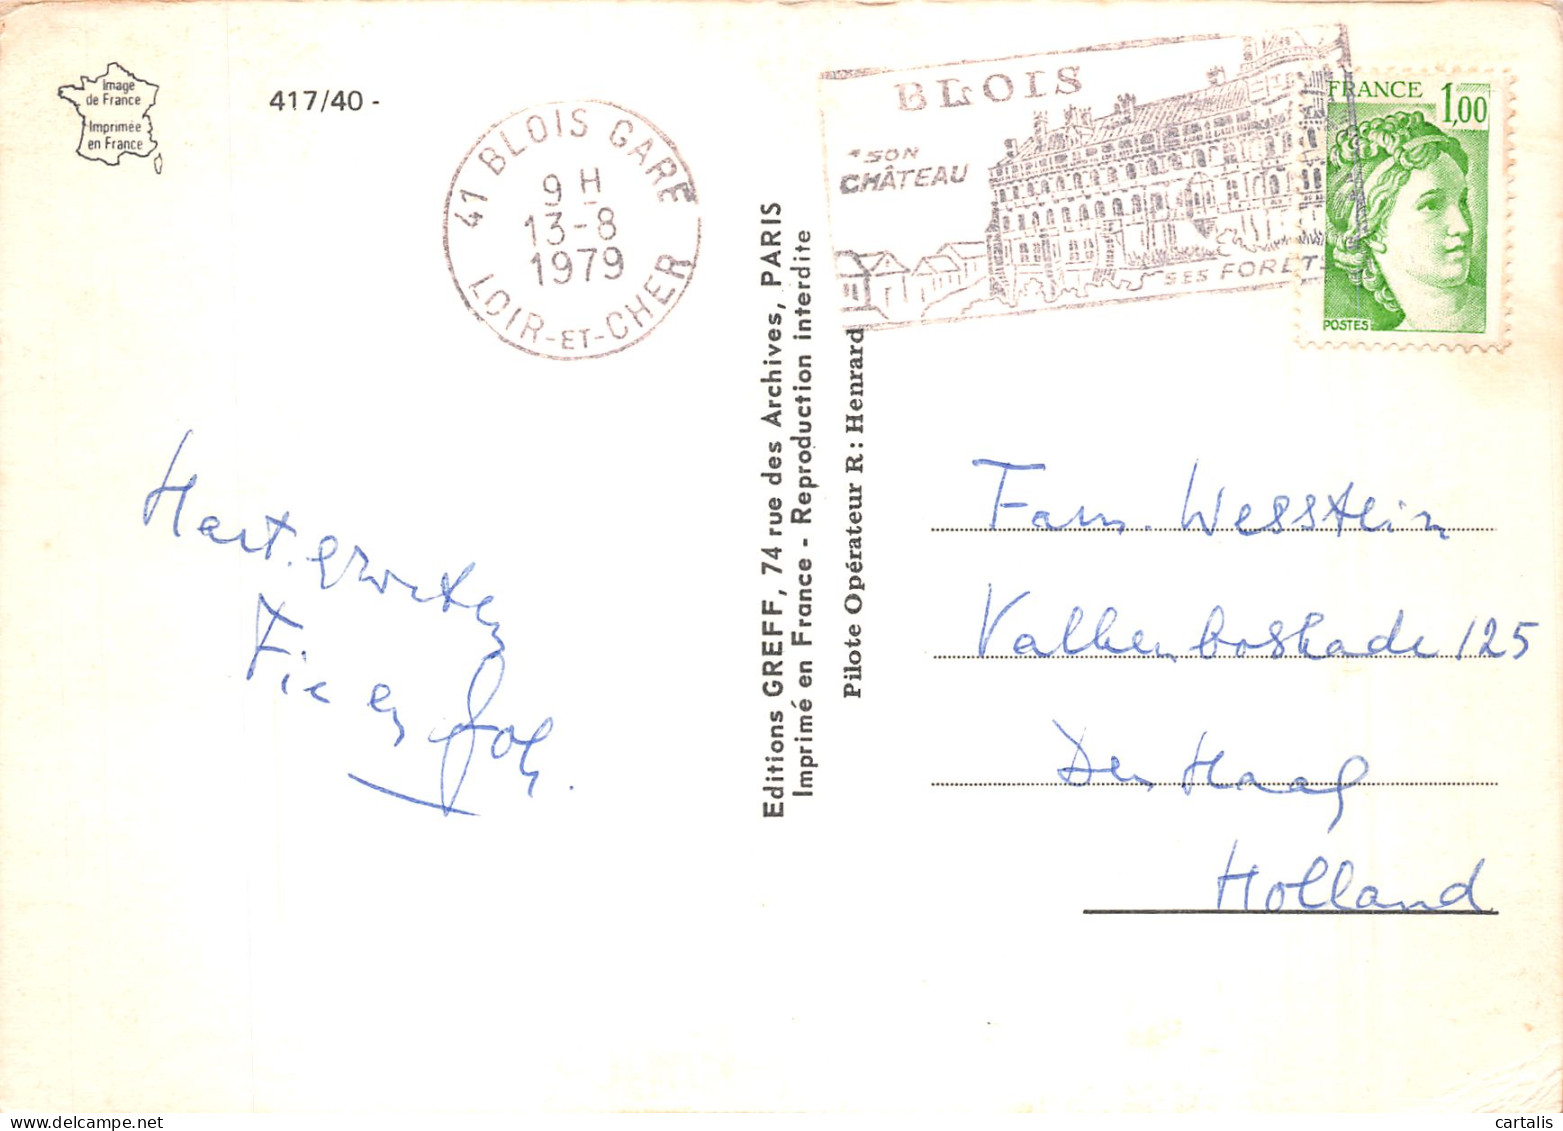 Image
de France
Imprimée
en France
417/40 -
41 BLOIS GARE
9 H
13-8
1979
LOIR-ET-CHER
BLOIS
SON
CHÂTEAU
SES FORETS
FRANCE 1,00
POSTES
Hart. groeten
Fie en Joh.
Editions GREFF, 74 rue des Archives, PARIS
Imprimé en France - Reproduction interdite
Pilote Opérateur R : Henrard
Fam. Wesstein
Valkenboskade 125
Den Haag
Holland
cartalis